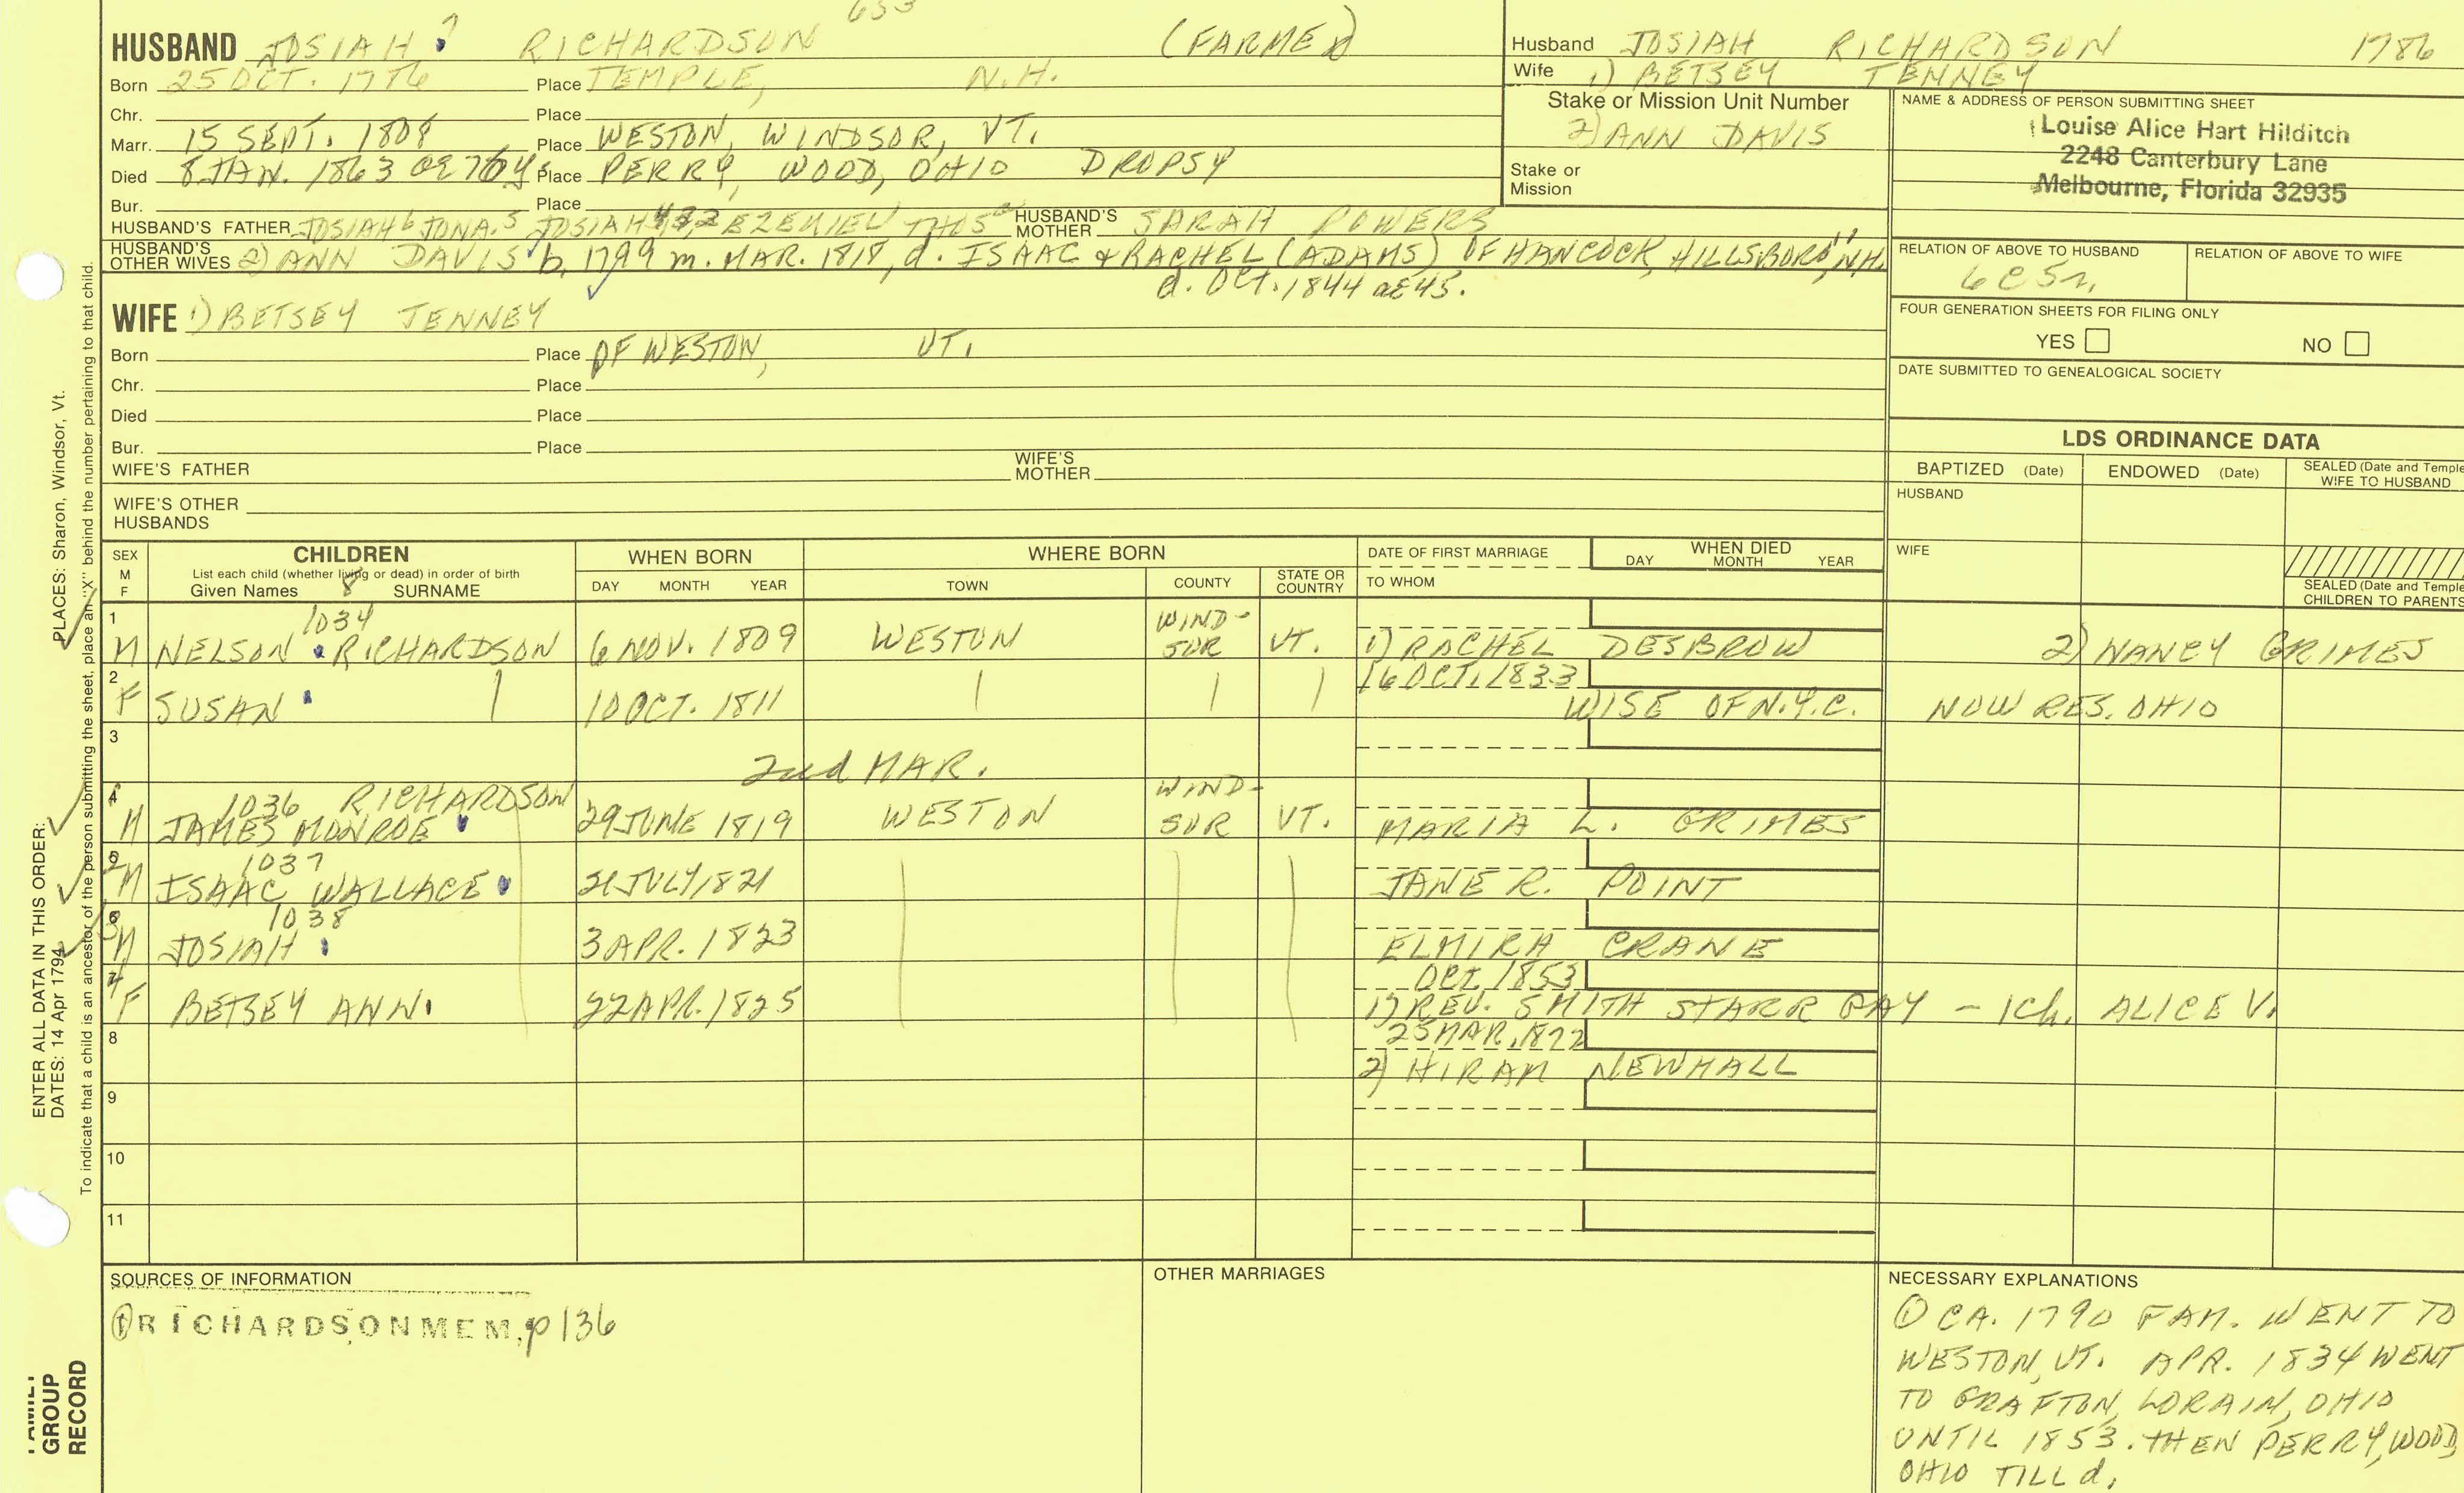 653
HUSBAND JOSIAH 7 RICHARDSON (FARMER)
Born 25 OCT. 1786 Place TEMPLE, N.H.
Chr. Place
Marr. 15 SEPT. 1808 Place WESTON, WINDSOR, VT.
Died 8 JAN. 1863 Place PERRY, WOOD, OHIO DROPSY
Bur. Place
HUSBAND'S FATHER JOSIAH 6 JONA. 5 JOSIAH 432 EZEKIEL HUSBAND'S MOTHER SARAH POWERS
HUSBAND'S OTHER WIVES 2) ANN DAVIS b. 1799 m. MAR. 1818, d. ISAAC & RACHEL (ADAMS) OF HANCOCK, HILLSBORO, N.H.
d. OCT. 1844 ae 45.
WIFE 1) BETSEY TENNEY
Born Place OF WESTON, VT.
Chr. Place
Died Place
Bur. Place
WIFE'S FATHER WIFE'S MOTHER
WIFE'S OTHER HUSBANDS
Husband JOSIAH RICHARDSON 1786
Wife 1) BETSEY TENNEY
Stake or Mission Unit Number
2) ANN DAVIS
Stake or Mission
NAME & ADDRESS OF PERSON SUBMITTING SHEET
Louise Alice Hart Hilditch
2248 Canterbury Lane
Melbourne, Florida 32935
RELATION OF ABOVE TO HUSBAND RELATION OF ABOVE TO WIFE
6C5r.
FOUR GENERATION SHEETS FOR FILING ONLY
YES NO
DATE SUBMITTED TO GENEALOGICAL SOCIETY
LDS ORDINANCE DATA
BAPTIZED (Date) ENDOWED (Date) SEALED (Date and Temple) WIFE TO HUSBAND
HUSBAND
WIFE
SEALED (Date and Temple) CHILDREN TO PARENTS
SEX M F
CHILDREN
List each child (whether living or dead) in order of birth
Given Names 8 SURNAME
WHEN BORN
DAY MONTH YEAR
WHERE BORN
TOWN COUNTY STATE OR COUNTRY
DATE OF FIRST MARRIAGE
TO WHOM
WHEN DIED
DAY MONTH YEAR
1 1034
M NELSON RICHARDSON 6 NOV. 1809 WESTON WIND-SOR VT. 1) RACHEL DESBROW 2) NANCY GRIMES
2 16 OCT. 1833
F SUSAN 10 OCT. 1811 WISE OF N.Y.C. NOW RES. OHIO
3
2nd MAR.
4 1036 RICHARDSON
M JAMES MONROE 29 JUNE 1819 WESTON WIND-SOR VT. MARIA L. GRIMES
5 1037
M ISAAC WALLACE 21 JULY 1821 JANE R. POINT
6 1038
M JOSIAH 3 APR. 1823 ELMIRA CRANE
7 OCT. 1853
F BETSEY ANN 22 APR. 1825 1) REV. SMITH STARR GAY - 1 ch. ALICE V.
8 25 MAR. 1872
2) HIRAM NEWHALL
9
10
11
SOURCES OF INFORMATION
① RICHARDSON MEM. p 136
OTHER MARRIAGES
NECESSARY EXPLANATIONS
① CA. 1790 FAM. WENT TO
WESTON, VT. APR. 1834 WENT
TO GRAFTON, LORAIN, OHIO
UNTIL 1853. THEN PERRY, WOOD,
OHIO TILL d.
ENTER ALL DATA IN THIS ORDER:
PLACES: Sharon, Windsor, Vt.
DATES: 14 Apr 1794
To indicate that a child is an ancestor of the person submitting the sheet, place an "X" behind the number pertaining to that child.
FAMILY
GROUP
RECORD